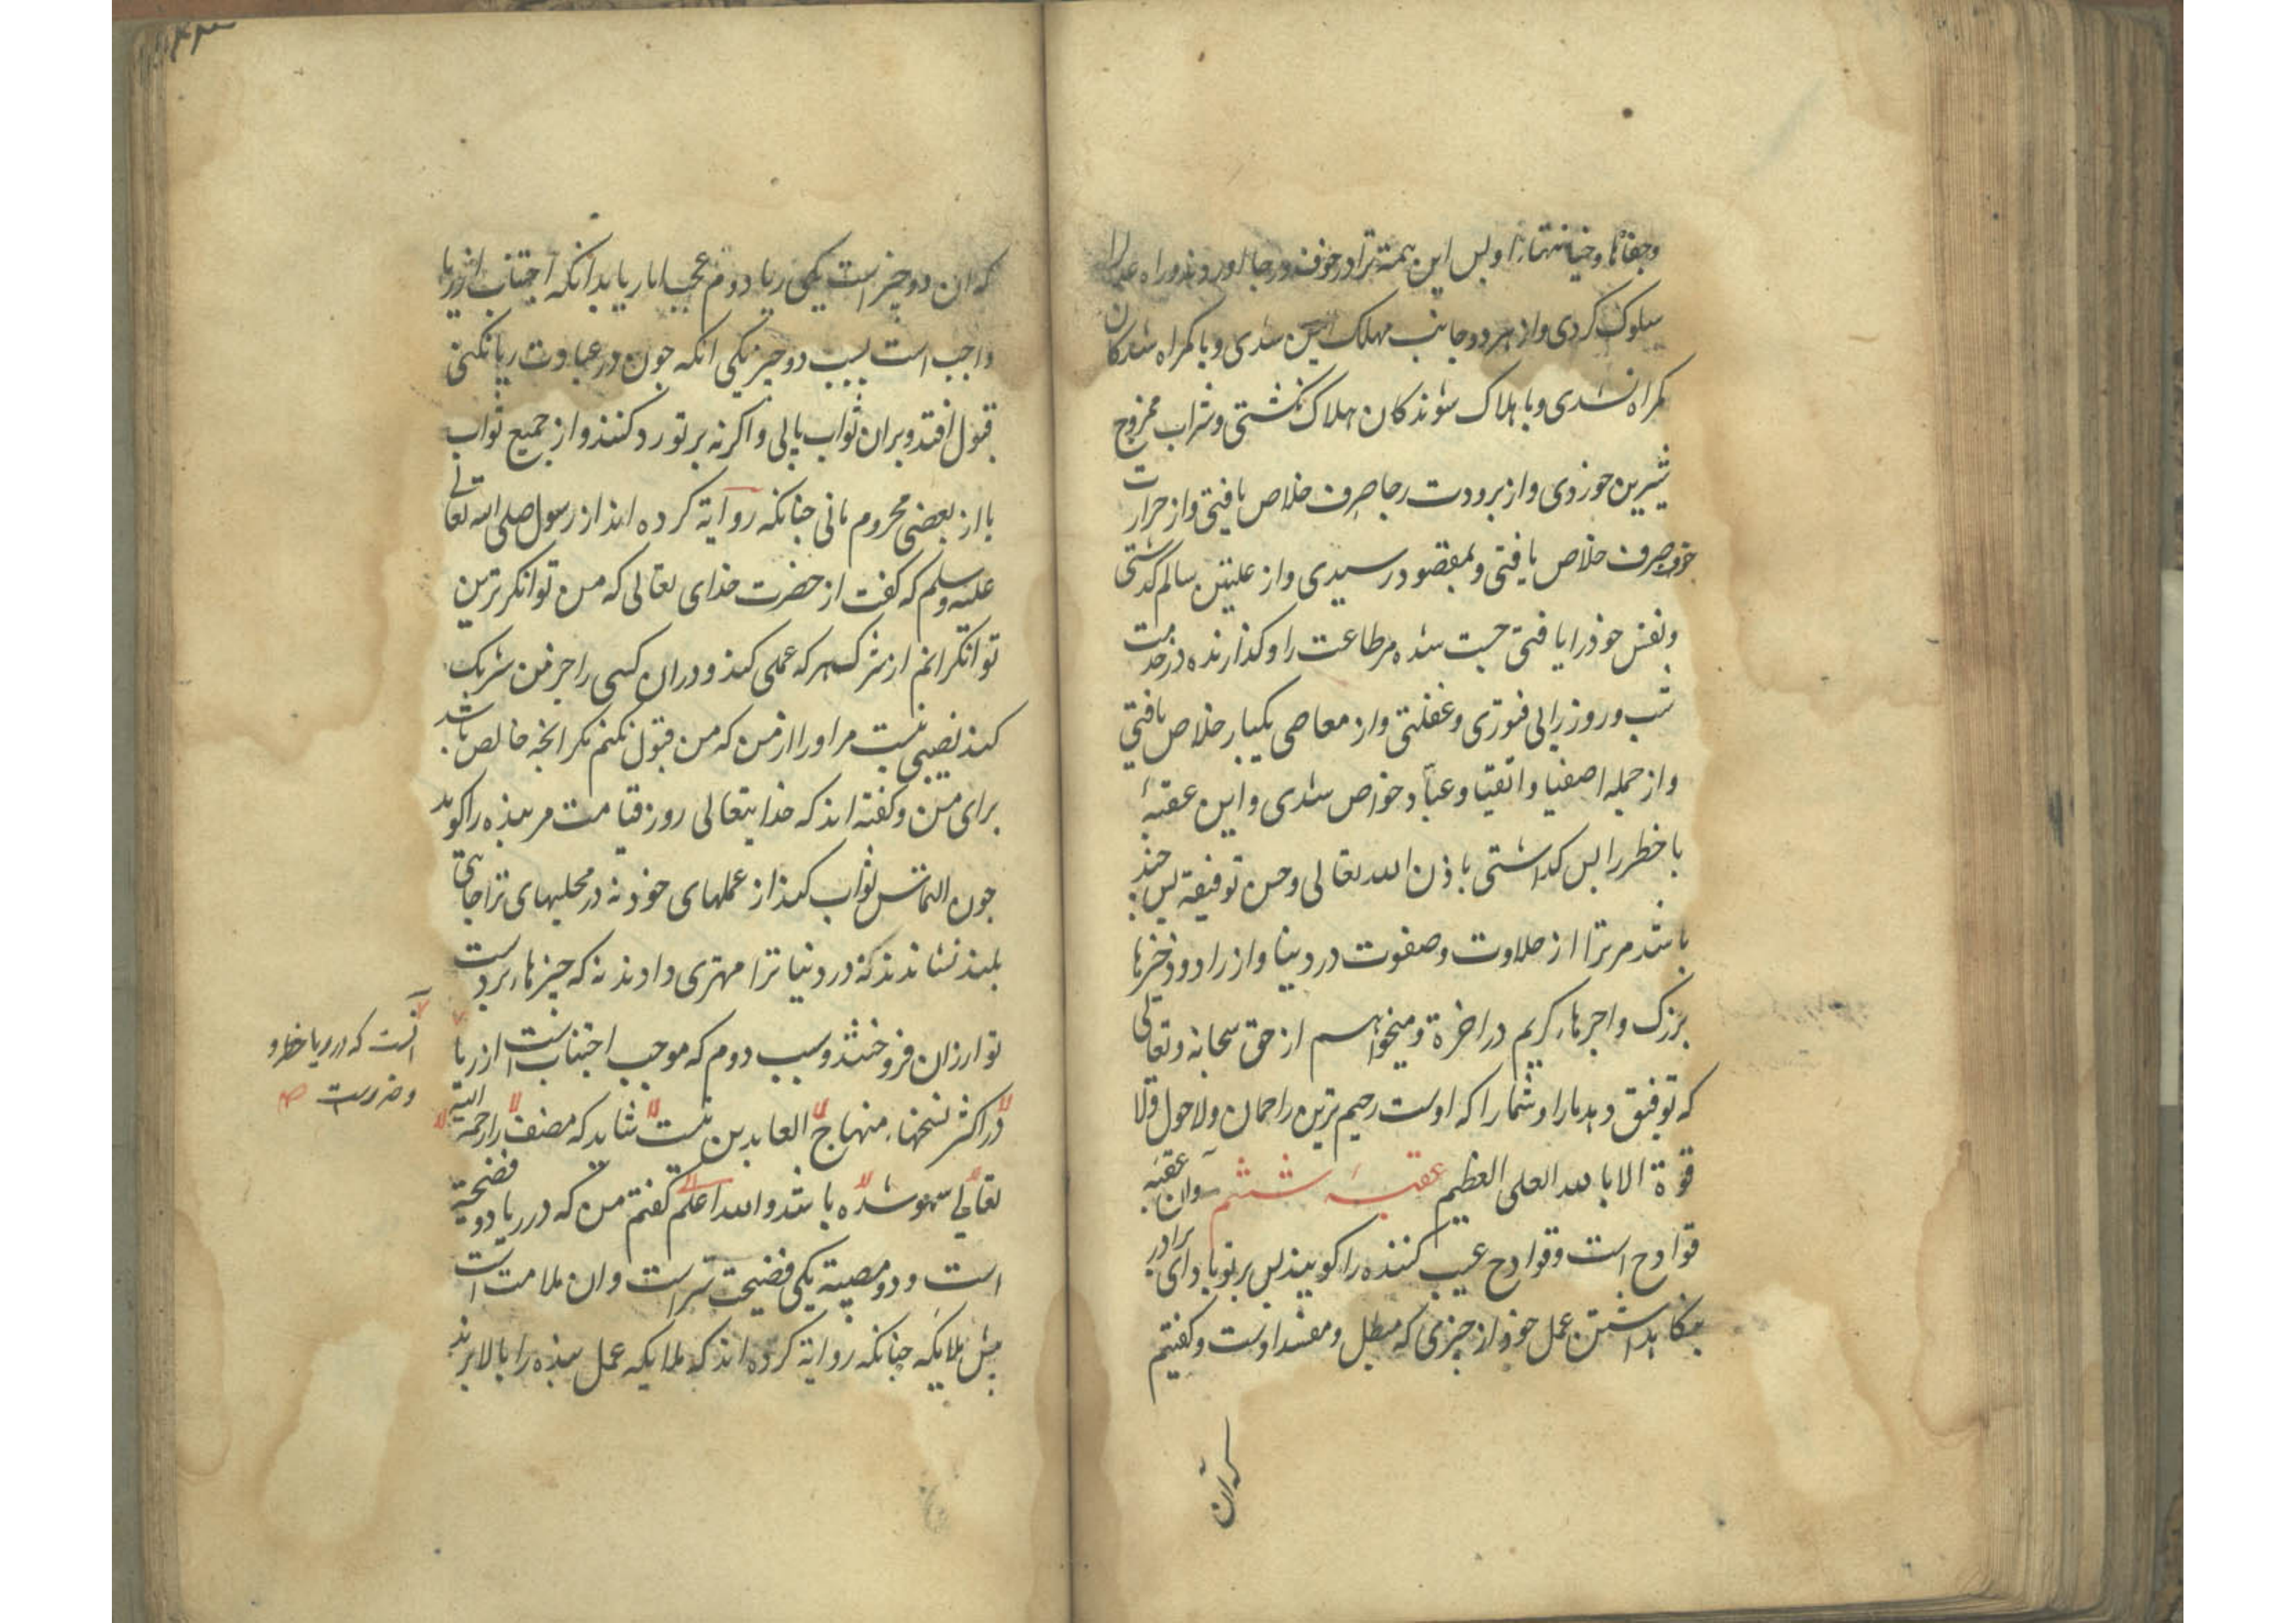 وجفاها وخیانتها را وپس این همه ترا در خوف ورجا اورد وند وراه عدل را
سلوک کردی واز هر دو جانب مهلک ایمن شدی وبا کمراه شدکان
کمراه نشدی وبا هلاک شوندکان هلاک نکشتی وشراب ممزوج
شیرین خوردی واز برودت رجا صرف خلاص یافتی واز حرارت
خوف صرف خلاص یافتی وبمقصود رسیدی واز علتین سالم کذشتی
ونفس خود را یافتی چست شده مر طاعت را وکذارنده در خدمت
شب وروز را بی فتوری وغفلتی واز معاصی یکبار خلاص یافتی
واز جمله اصفیا واتقیا وعباد خواص شدی واین عقبهٔ
با خطر را پس کذاشتی باذن الله تعالی وحسن توفیقه پس چند
باشد مر ترا از حلاوت وصفوت در دنیا واز زاد وذخرها
بزرک واجرهاء کریم در اخرة ومیخواهم از حق سبحانه وتعالی
که توفیق دهد مارا وشمارا که اوست رحیم ترین راحمان ولا حول ولا
قوة الا بالله العلی العظیم عقبهٔ ششم وان عقبهٔ
قوادح است وقوادح عیب کننده را کویند پس بر تو باد ای برادر
بنکاهداشتن عمل خود از چیزی که مبطل ومفسد اوست وکفتیم
که ان
که ان دو چیز است یکی ریا دوم عجب اما ریا بدانکه اجتناب از ریا
واجب است بسبب دو چیز یکی انکه چون در عبادت ریا نکنی
قبول افتد وبران ثواب یابی واکر نه بر تو رد کنند واز جمیع ثواب
یا از بعضی محروم مانی چنانکه روایة کرده اند از رسول صلی الله تعالی
علیه وسلم که کفت از حضرت خدای تعالی که من توانکر ترین
توانکرانم از شرک هر که عملی کند ودران کسی را جز من شریک
کند نصیبی نیست مر اورا از من که من قبول نکنم مکر انچه خالص باشد
برای من وکفته اند که خدایتعالی روز قیامت مر بنده را کوید
چون التماس ثواب کند از عملهای خود نه در مجلسهای ترا جای
بلند نشاندند که در دنیا ترا مهتری دادند نه که چیزهاء بر دست
تو ارزان فروختند وسبب دوم که موجب اجتناب است از ریا
آنست که در ریا خطر و
وضررست صح
در اکثر نسخهاء منهاج العابدین نیست شاید که مصنف را رحمة الله
تعالی سهو شده باشد والله اعلم کفتم من که در ریا دو فضیحة
است ودو مصیبة یکی فضیحت سراست وان ملامت است
پیش ملایکه چنانکه روایة کرده اند که ملایکه عمل بنده را بالا برند